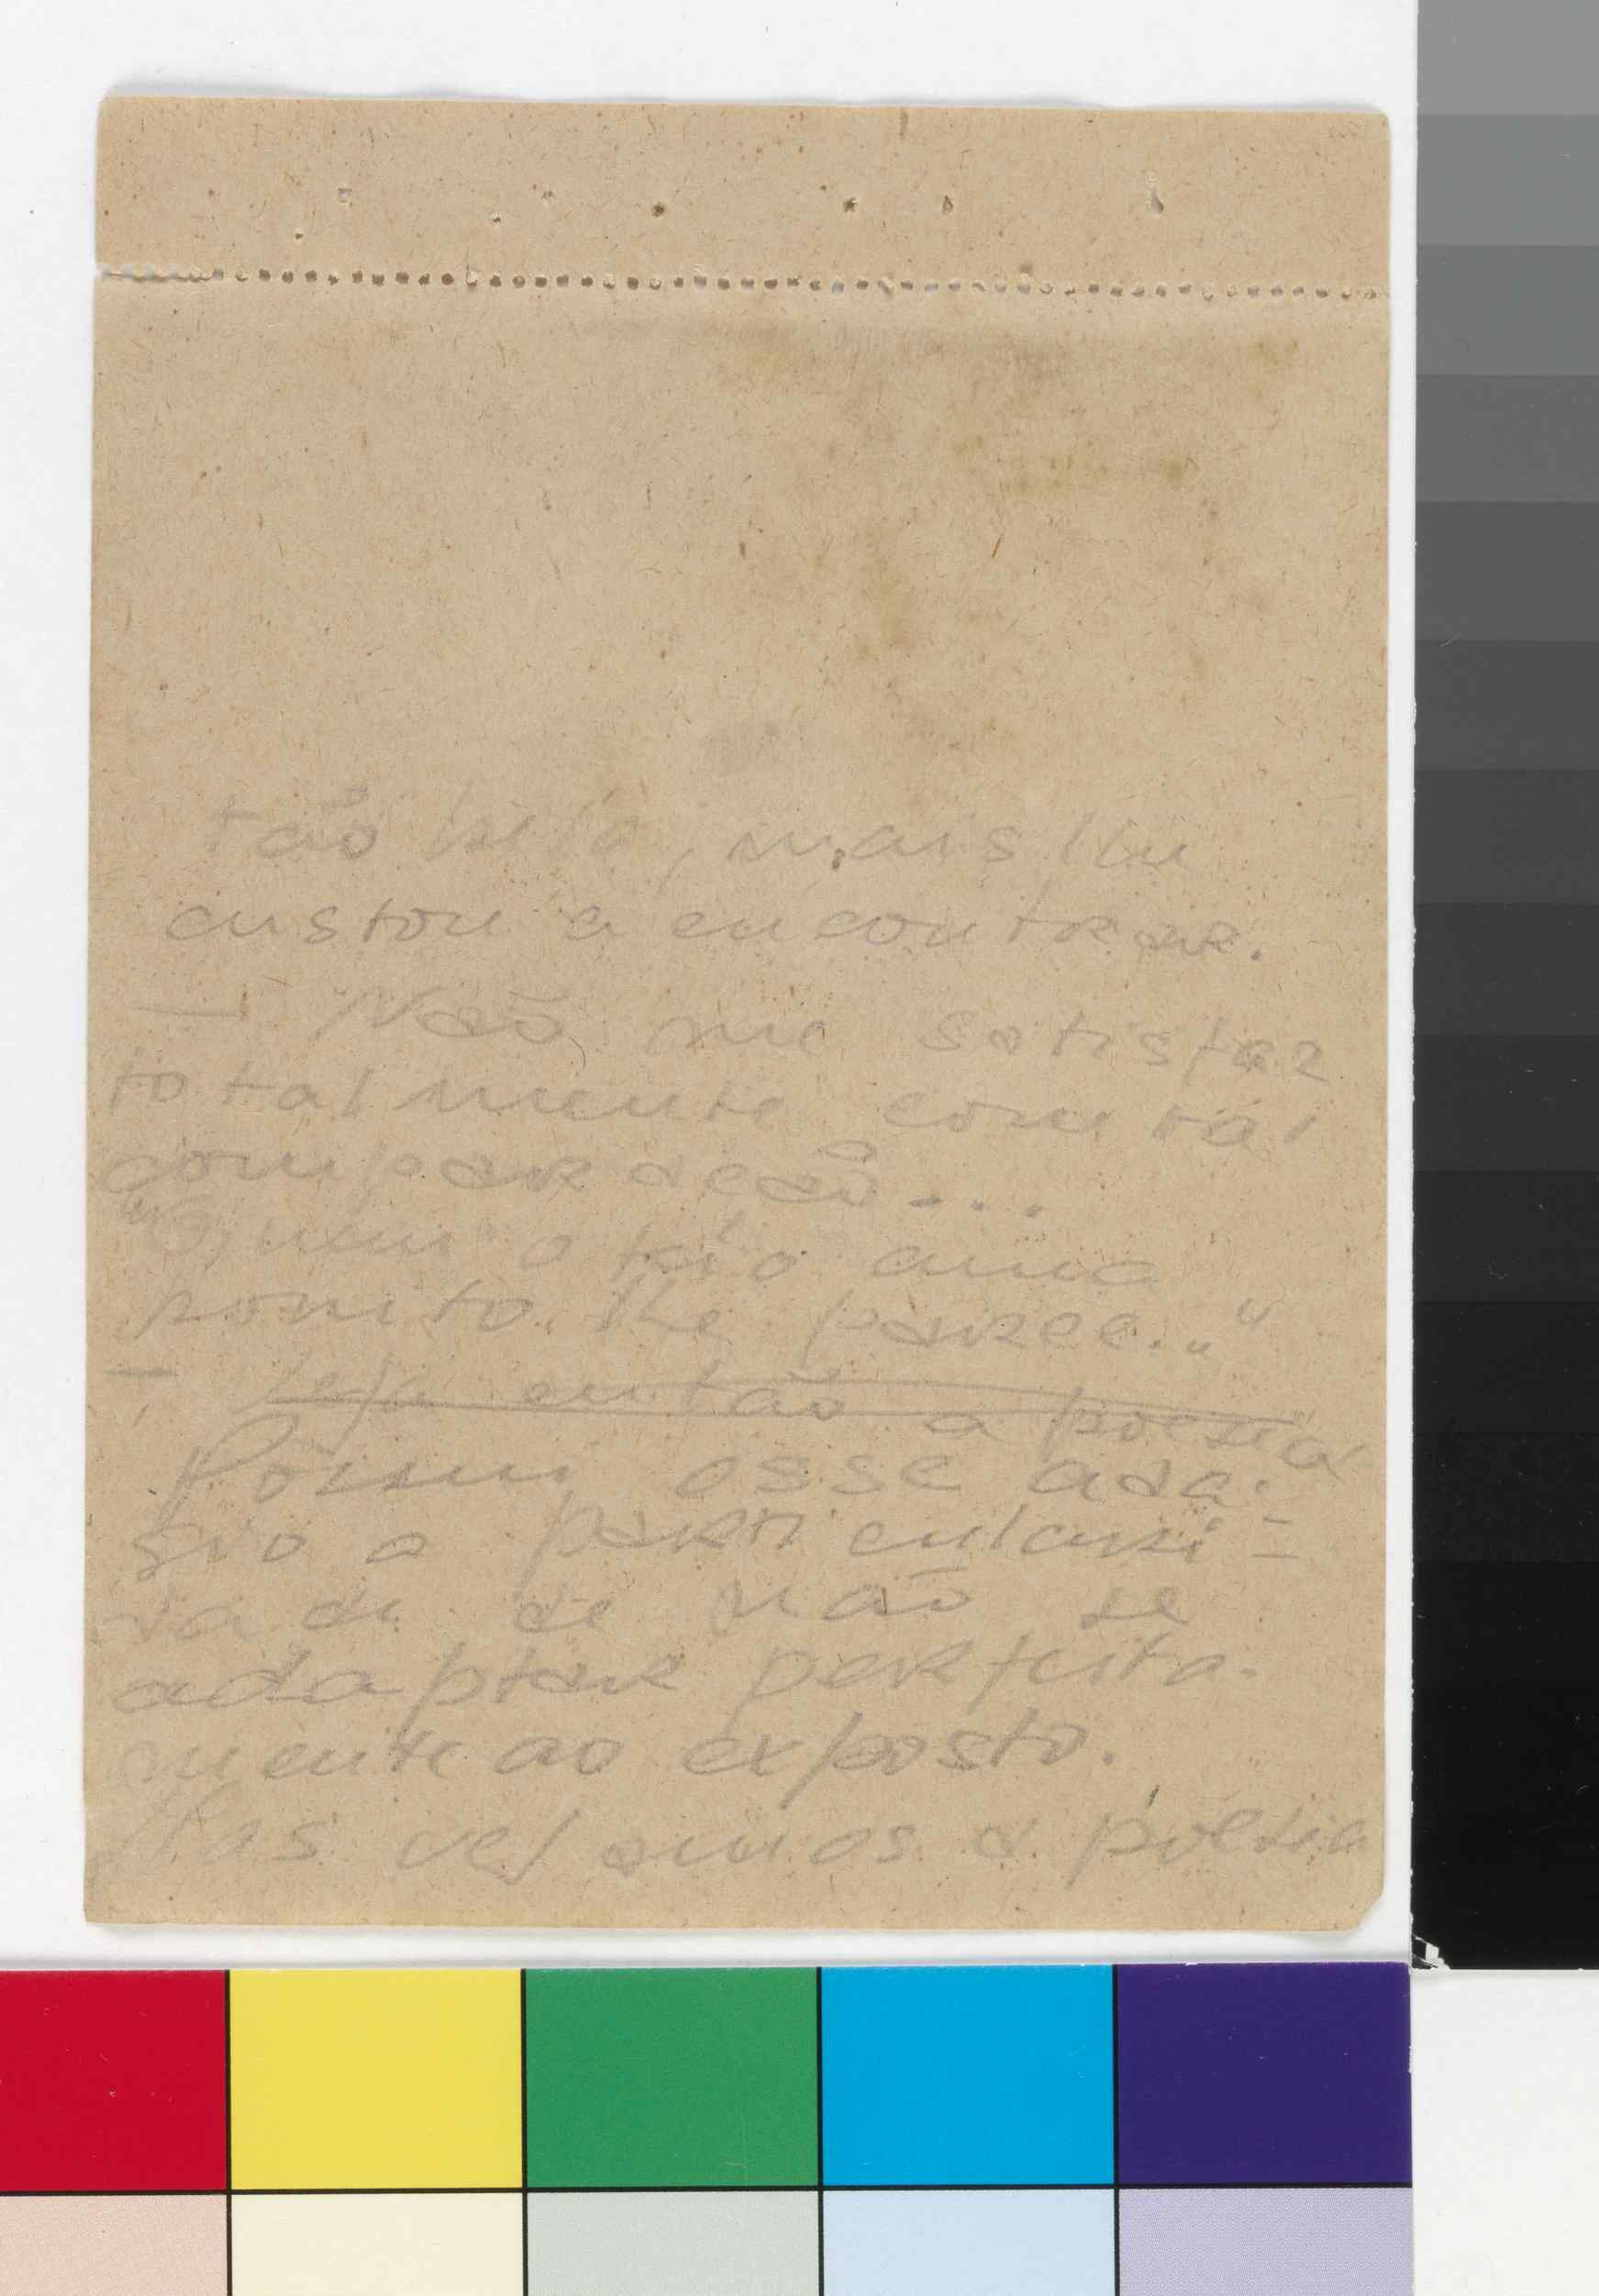 tão bella, mais lhe
custou a encontrar.
— Não me satisfaz
totalmente com tal
comparação...
o feio ama
bonito lhe parece..."
— Leja então a poesia
Possui esse ada-
gio a particulari=
dade de não se
adaptar perfeita-
mente ao exposto.
Mas vejamos a poesia